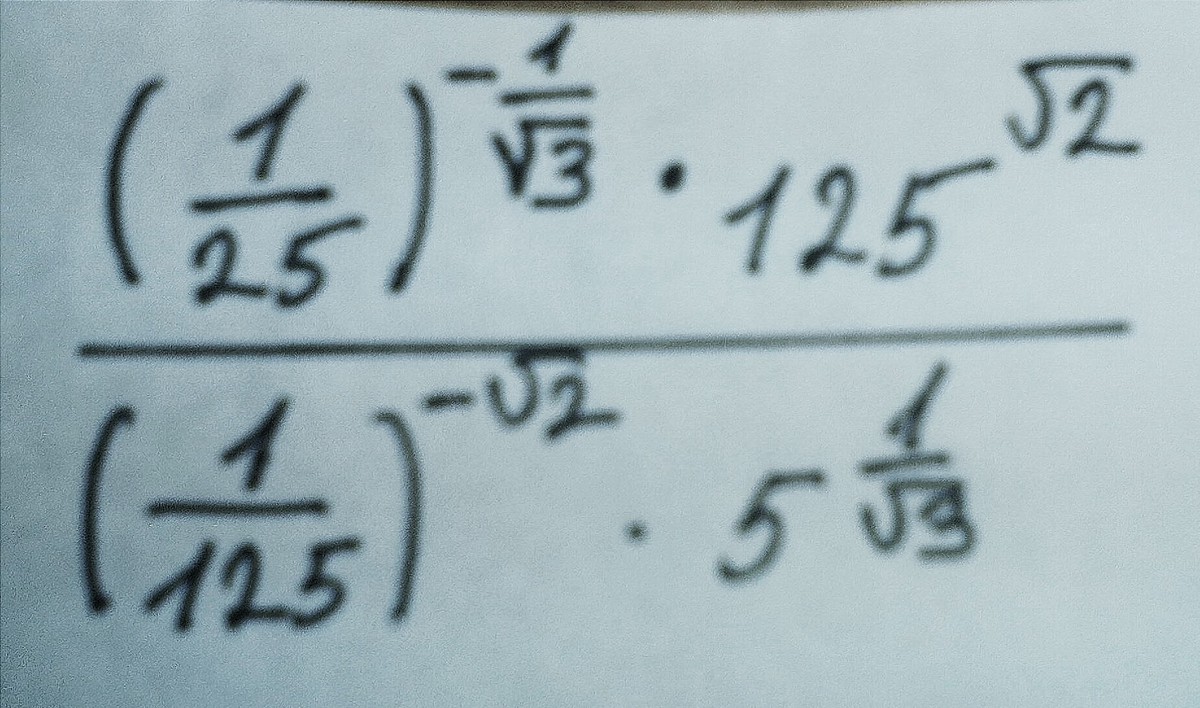 (1/25)^(-1/√3) · 125^√2
(1/125)^(-√2) · 5^(1/√3)